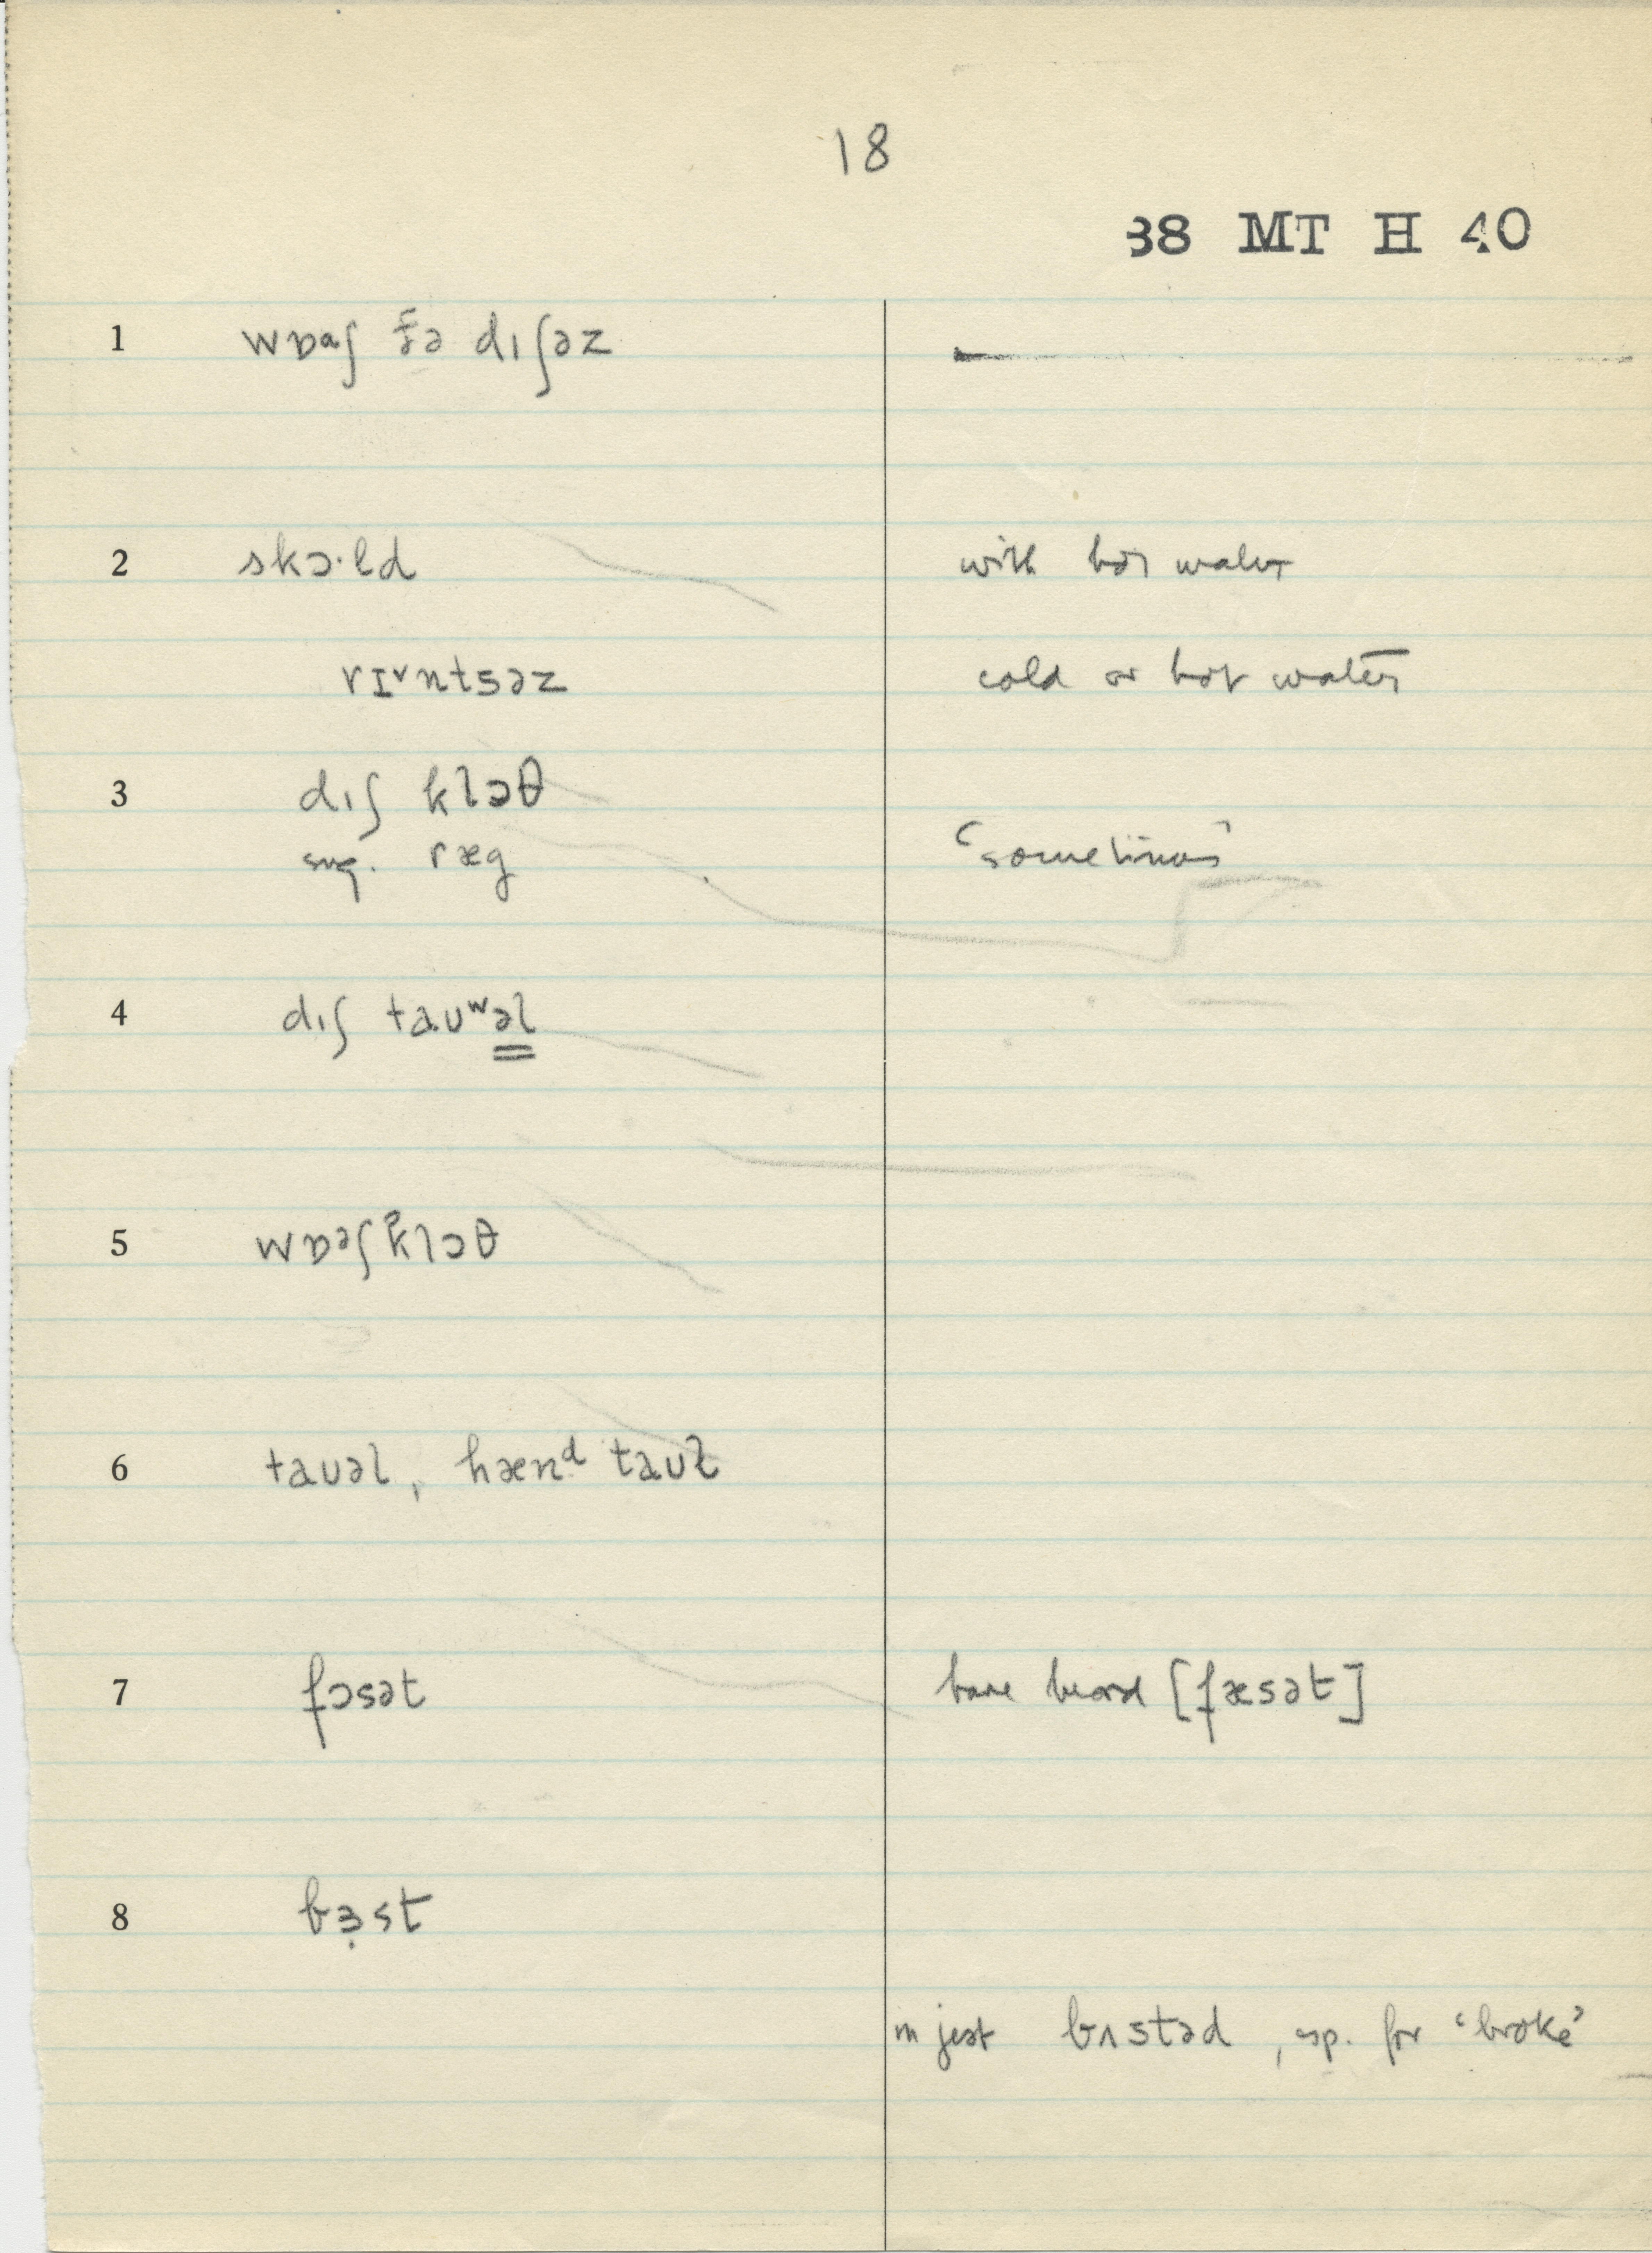 18
38 MT H 40
1 wɒɑʃ ðə dɪʃəz —
2 skɔ·ld with hot water
rɪ˅ntsəz cold or hot water
3 dɪʃ klɔθ
sug. ræg 'sometimes'
4 dɪʃ taʊʷəl
5 wɒəʃklɔθ
6 taʊəl, hænᵈ taʊɫ
7 fɔsət have heard [fæsət]
8 bɜ̣st
in jest bʌstəd, esp. for 'broke'